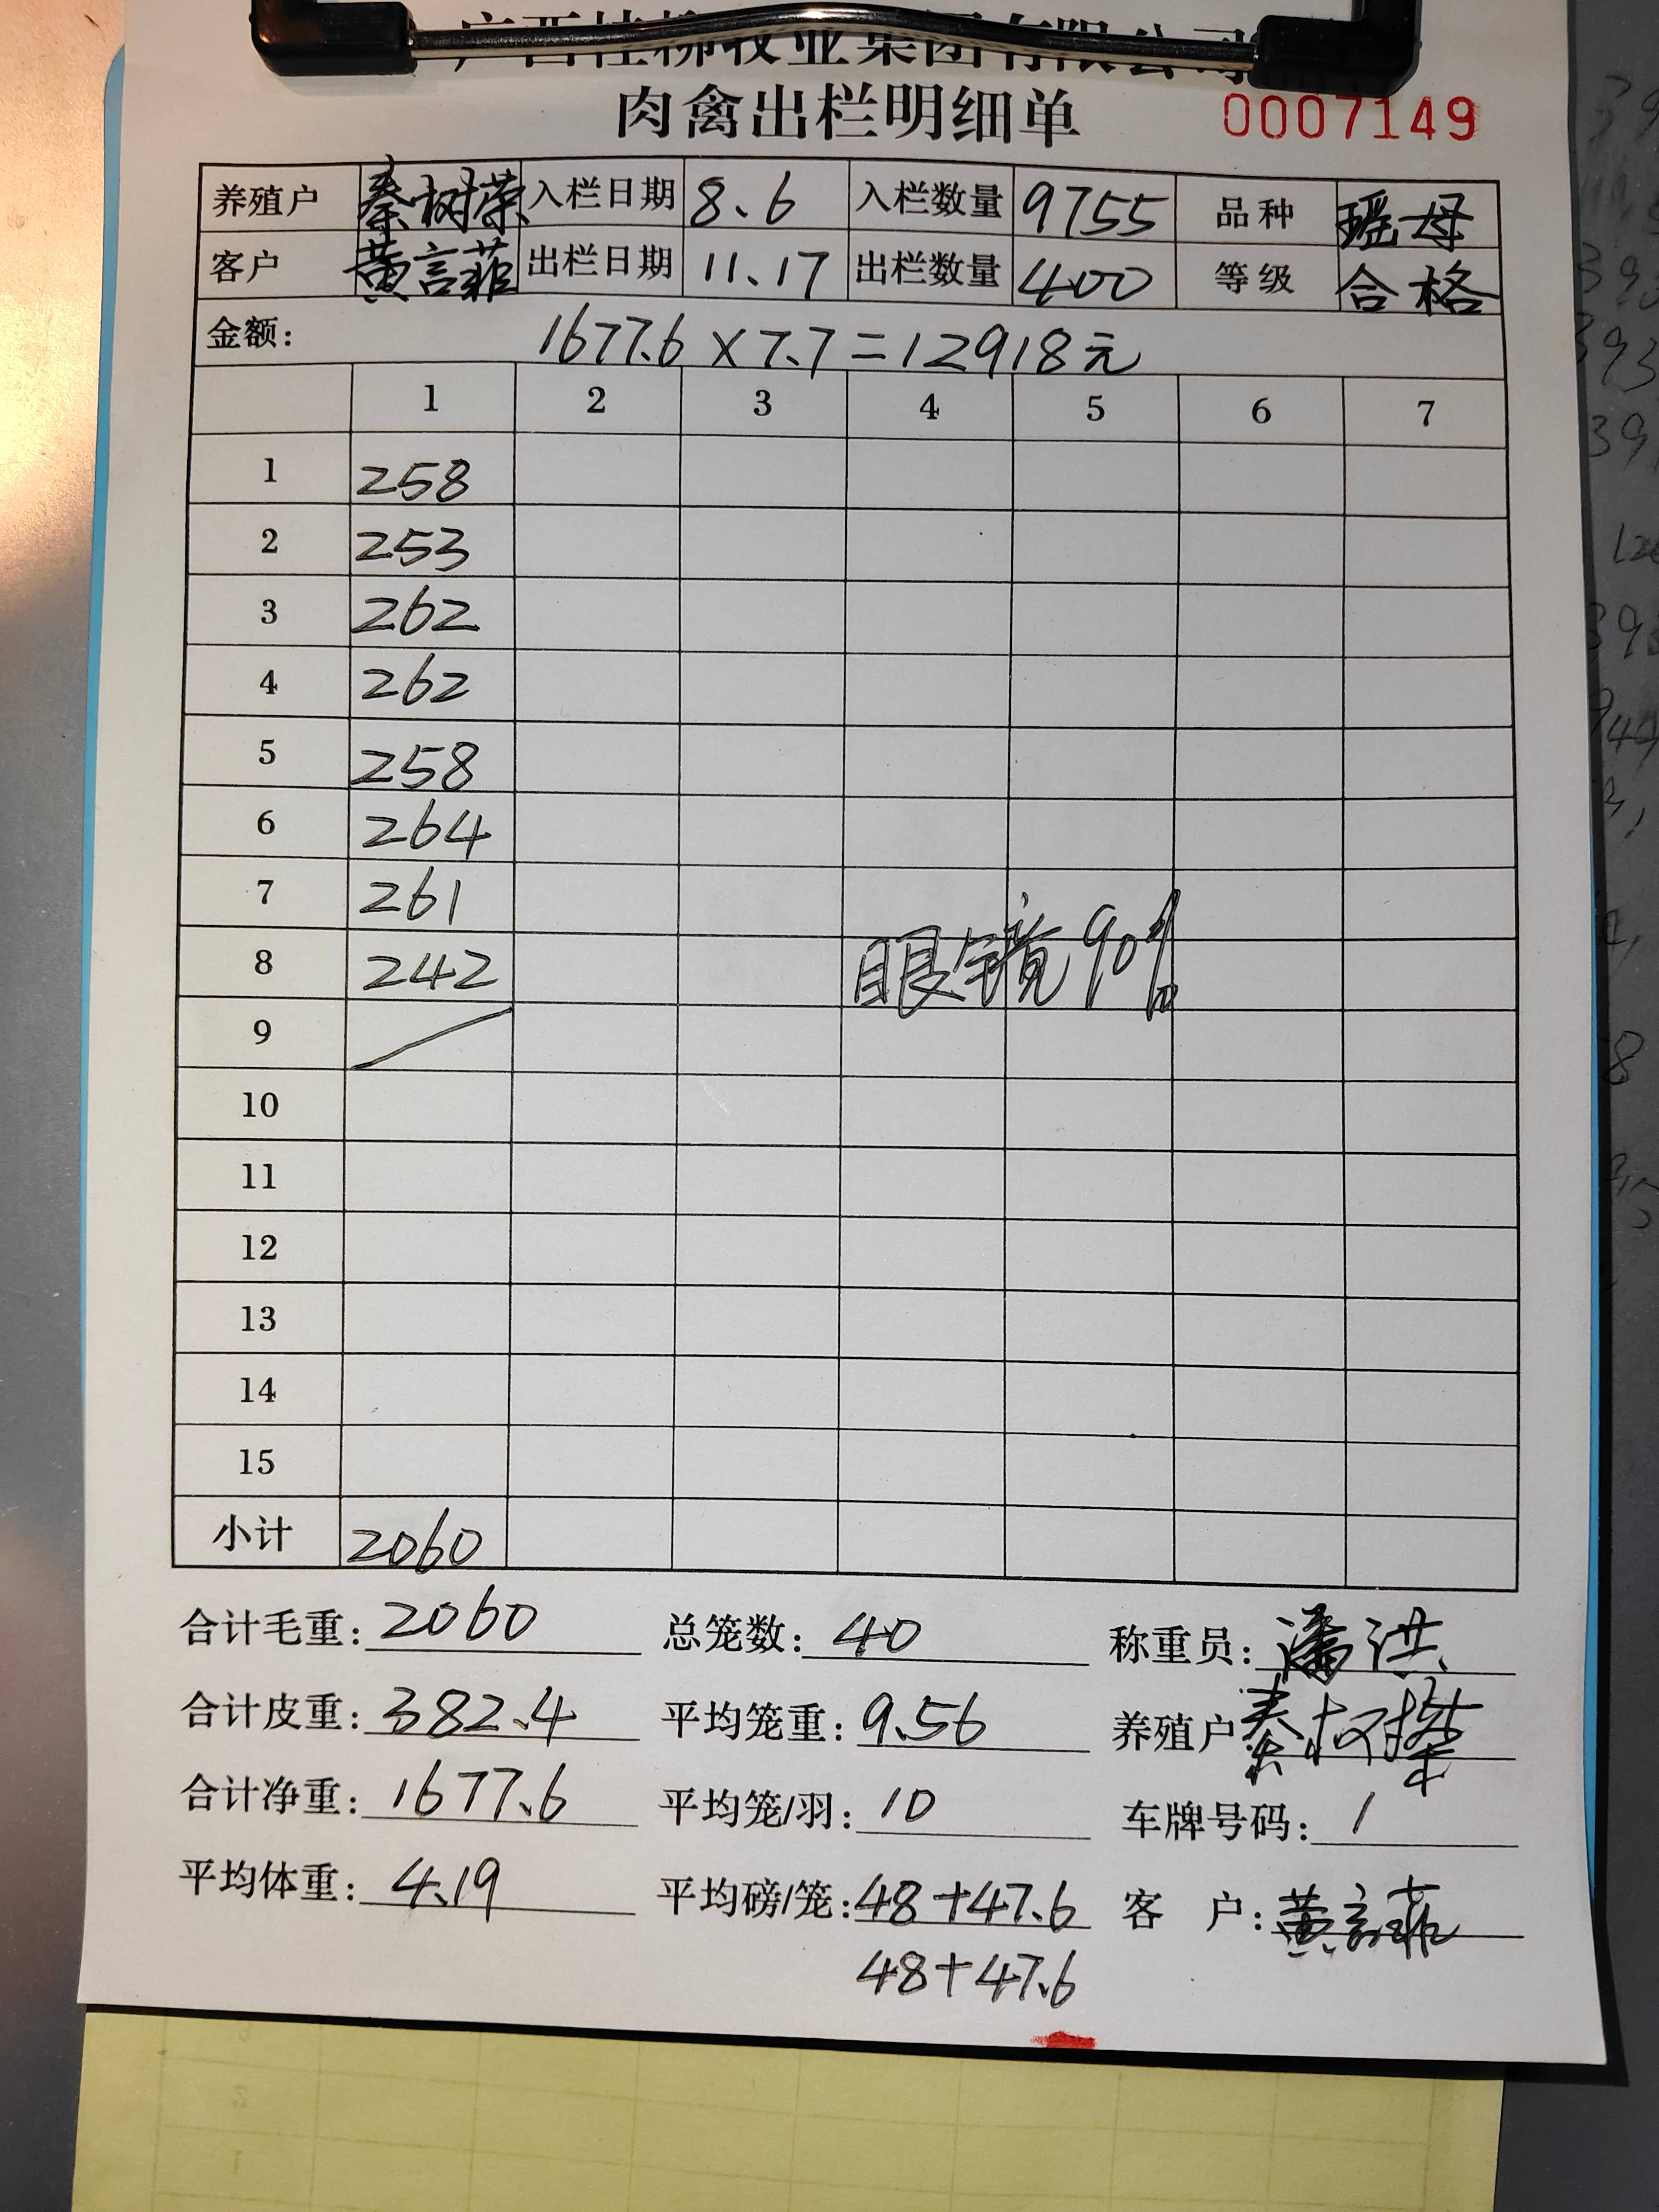 广西桂柳牧业集团有限公司
肉禽出栏明细单 0007149
养殖户 秦树荣 入栏日期 8.6 入栏数量 9755 品种 瑶母
客户 黄言菲 出栏日期 11.17 出栏数量 400 等级 合格
金额: 1677.6×7.7=12918元
1 2 3 4 5 6 7
1 258
2 253
3 262
4 262
5 258
6 264
7 261
8 242 眼镜90个
9
10
11
12
13
14
15
小计 2060
合计毛重: 2060 总笼数: 40 称重员: 潘洪
合计皮重: 382.4 平均笼重: 9.56 养殖户 秦树荣
合计净重: 1677.6 平均笼/羽: 10 车牌号码: 1
平均体重: 4.19 平均磅/笼: 48+47.6 客 户: 黄言菲
48+47.6